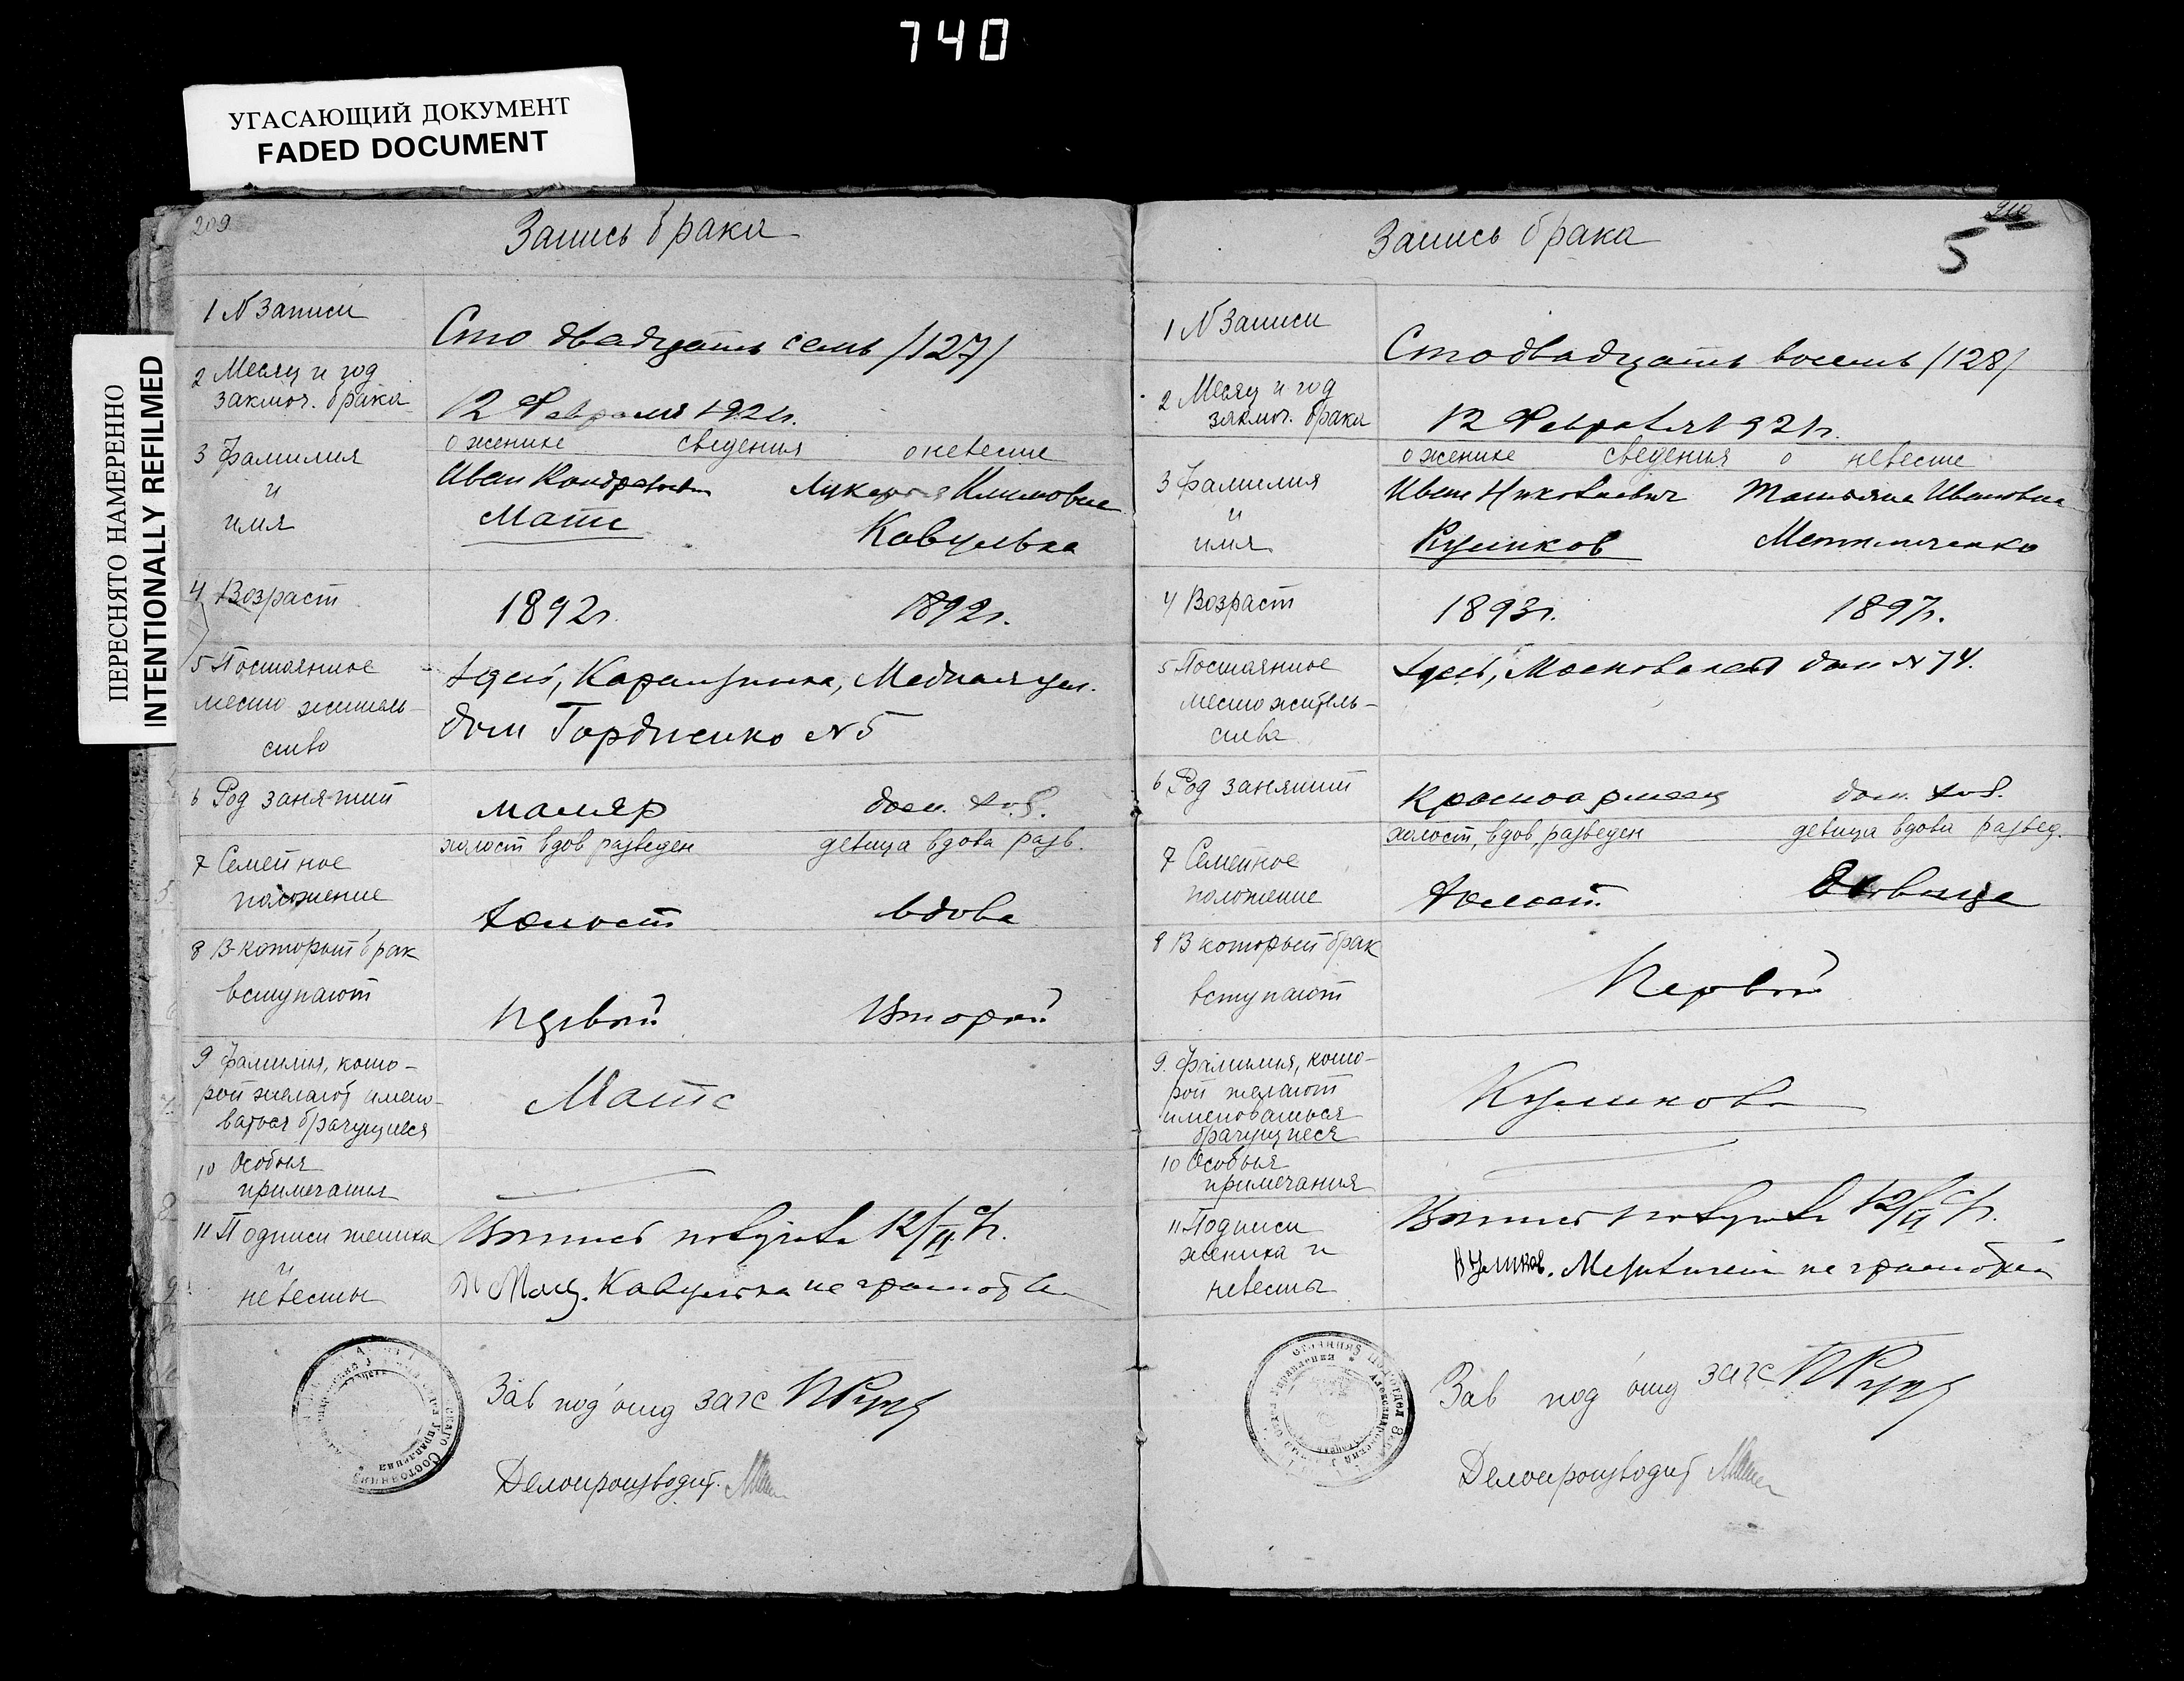 740
УГАСАЮЩИЙ ДОКУМЕНТ
FADED DOCUMENT
ПЕРЕСНЯТО НАМЕРЕННО
INTENTIONALLY REFILMED
209
Запись брака
1 N Записи
Сто двадцать семь /127/
2 Месяц и год
заключ. брака
12 Февраля 1921г.
о женихе сведения о невесте
3 Фамилия
и
имя
Иван Кондратьев Лукерья Климовна
Мате Кавулька
4 Возраст
1892г. 1892г.
5 Постоянное
место житель-
ство
Здесь, Карантинка, Медная ул.
дом Гордиенко N 5
6 Род занятий
маляр дом. хоз.
холост вдов разведен девица вдова разв.
7 Семейное
положение
Холост вдова
8 В который брак
вступают
Первый Второй
9 Фамилия, кото-
рой желают имено-
ваться брачущиеся
Мате
10 Особые
примечания
11 Подписи жениха
и
невесты
Выпись получила 12/II с/г.
Кавулька не грамотна
Зав под'отд загс
Делопроизводит.
210
5
Запись брака
1 N Записи
Сто двадцать восемь /128/
2 Месяц и год
заключ. брака
12 Февраля 1921г.
о женихе сведения о невесте
3 Фамилия
и
имя
Иван Николаевич Татьяна Ивановна
Куликов
4 Возраст
1893г. 1897г.
5 Постоянное
место житель-
ства
Здесь, Московская дом N 74.
6 Род занятий
Красноармеец дом. хоз.
холост, вдов, разведен девица вдова развед.
7 Семейное
положение
Холост. девица
8 В который брак
вступают
Первый
9. Фамилия, кото-
рой желают
именоваться
брачущиеся
Куликова
10 Особые
примечания
11 Подписи
жениха и
невесты
Выпись получила 12/II с/г.
Куликов. не грамотная
Зав под'отд загс
Делопроизводит